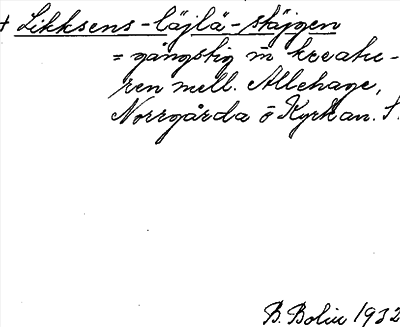 + Likksens-läjlä-stäjgen
= gångstig m̄ kreatu-
ren mell. Allehage,
Norrgårda ō Kyrkan. S.
B. Bolin 1932